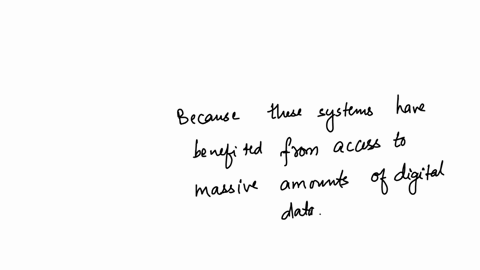 Because these systems have
benefited from access to
massive amounts of digital
data.